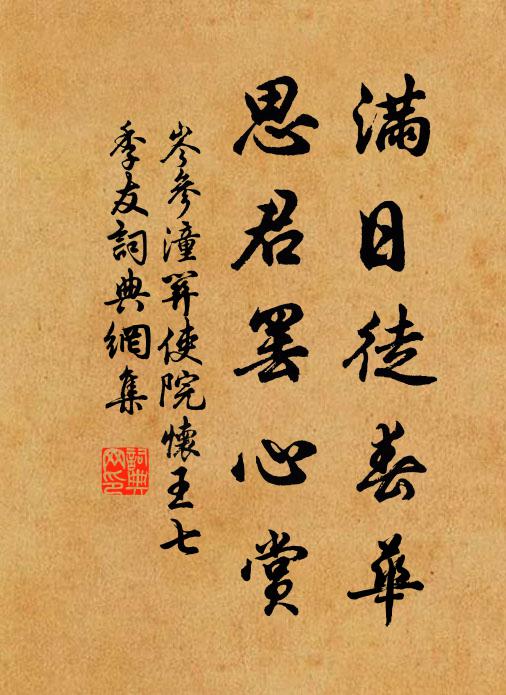 滿日徒春華
思君罷心賞
岑參潼關使院懷王七
季友詞典網集
詞典
网印